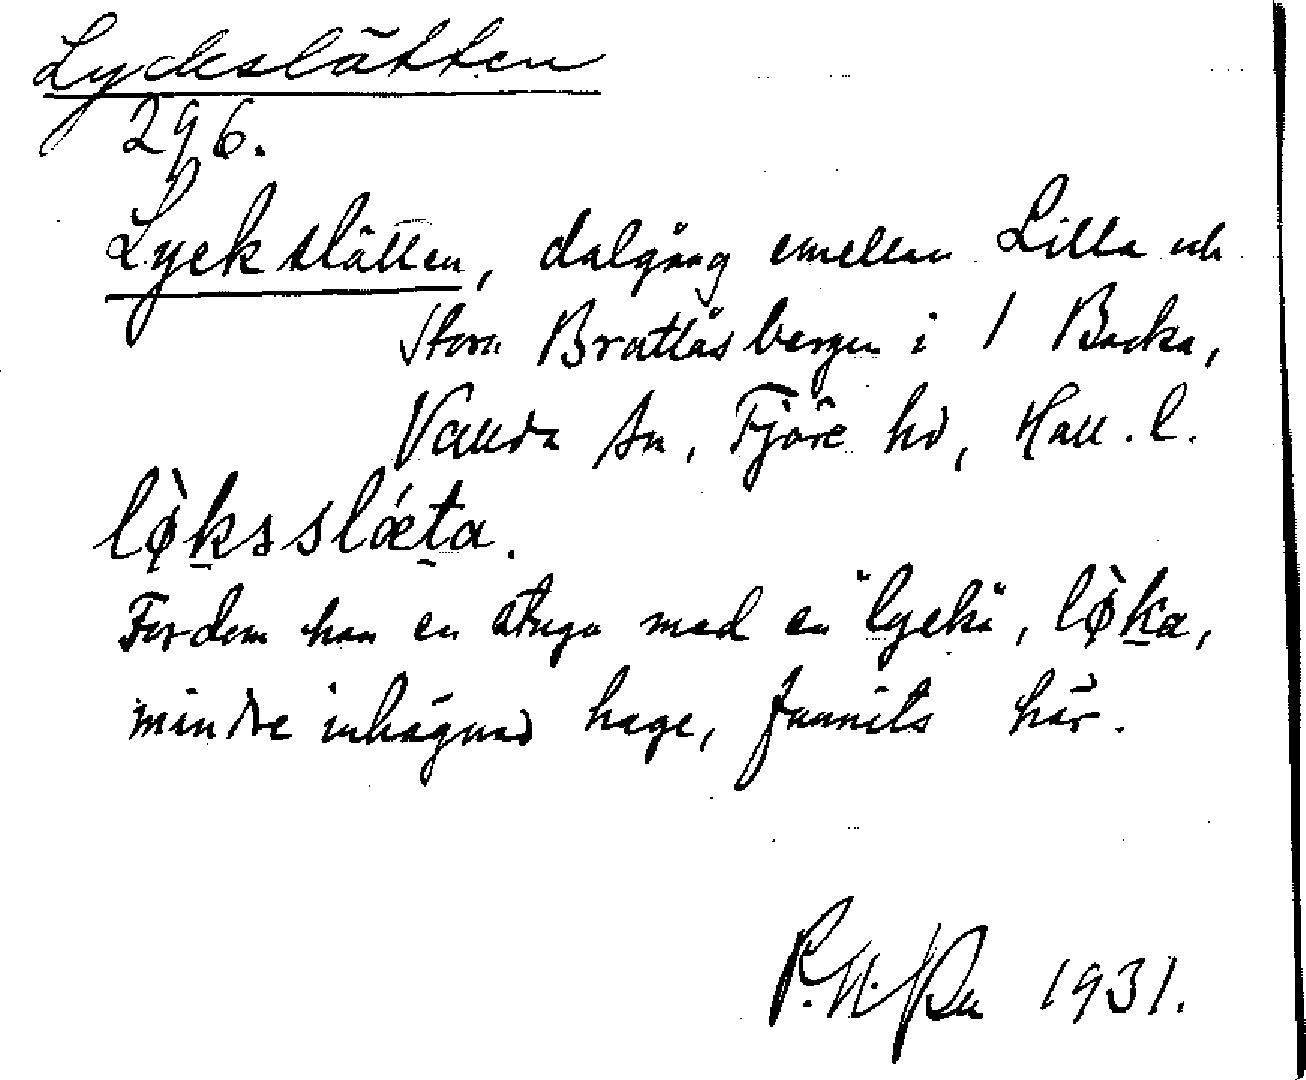 Lyckslätten
296.
Lyckslätten, dalgång emellan Lilla och
Stora Brattåsbergen i 1 Backa,
Vallda sn, Fjäre hd, Hall. l.
lø̀kₔsslǽta.
Fordom har en stuga med en "lycka", lø̀ka,
mindre inhägnad hage, funnits här.
1931.